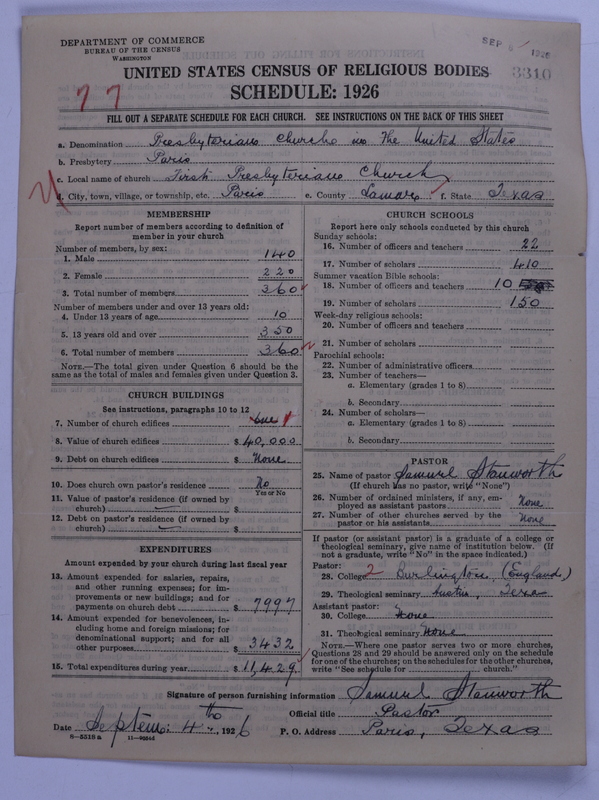 DEPARTMENT OF COMMERCE
BUREAU OF THE CENSUS
WASHINGTON
SEP 1926
3310
UNITED STATES CENSUS OF RELIGIOUS BODIES
SCHEDULE: 1926
77
FILL OUT A SEPARATE SCHEDULE FOR EACH CHURCH. SEE INSTRUCTIONS ON THE BACK OF THIS SHEET
a. Denomination Presbyterian Church in The United States
b. Presbytery Paris
c. Local name of church First Presbyterian Church
d. City, town, village, or township, etc. Paris e. County Lamar f. State Texas
MEMBERSHIP
Report number of members according to definition of
member in your church
Number of members, by sex:
1. Male 140
2. Female 220
3. Total number of members 360
Number of members under and over 13 years old:
4. Under 13 years of age 10
5. 13 years old and over 350
6. Total number of members 360
NOTE.—The total given under Question 6 should be the
same as the total of males and females given under Question 3.
CHURCH BUILDINGS
See instructions, paragraphs 10 to 12
7. Number of church edifices one 1
8. Value of church edifices $ 40,000
9. Debt on church edifices $ None
10. Does church own pastor's residence No
Yes or No
11. Value of pastor's residence (if owned by
church) $
12. Debt on pastor's residence (if owned by
church) $
EXPENDITURES
Amount expended by your church during last fiscal year
13. Amount expended for salaries, repairs,
and other running expenses; for im-
provements or new buildings; and for
payments on church debt $ 7997
14. Amount expended for benevolences, in-
cluding home and foreign missions; for
denominational support; and for all
other purposes 3432
15. Total expenditures during year $ 11,429
CHURCH SCHOOLS
Report here only schools conducted by this church
Sunday schools:
16. Number of officers and teachers 22
17. Number of scholars 410
Summer vacation Bible schools:
18. Number of officers and teachers 10
19. Number of scholars 150
Week-day religious schools:
20. Number of officers and teachers
21. Number of scholars
Parochial schools:
22. Number of administrative officers
23. Number of teachers—
a. Elementary (grades 1 to 8)
b. Secondary
24. Number of scholars—
a. Elementary (grades 1 to 8)
b. Secondary
PASTOR
25. Name of pastor Samuel Stanworth
(If church has no pastor, write "None")
26. Number of ordained ministers, if any, em-
ployed as assistant pastors None
27. Number of other churches served by the
pastor or his assistants None
If pastor (or assistant pastor) is a graduate of a college or
theological seminary, give name of institution below. (If
not a graduate, write "No" in the space indicated.)
Pastor:
28. College 2 Burlington (England)
29. Theological seminary Austin, Texas
Assistant pastor:
30. College None
31. Theological seminary None
NOTE.—Where one pastor serves two or more churches,
Questions 28 and 29 should be answered only on the schedule
for one of the churches; on the schedules for the other churches,
write "See schedule for church."
Signature of person furnishing information Samuel Stanworth
Official title Pastor
Date Septem: 4th, 1926 P. O. Address Paris, Texas
6—5518 a